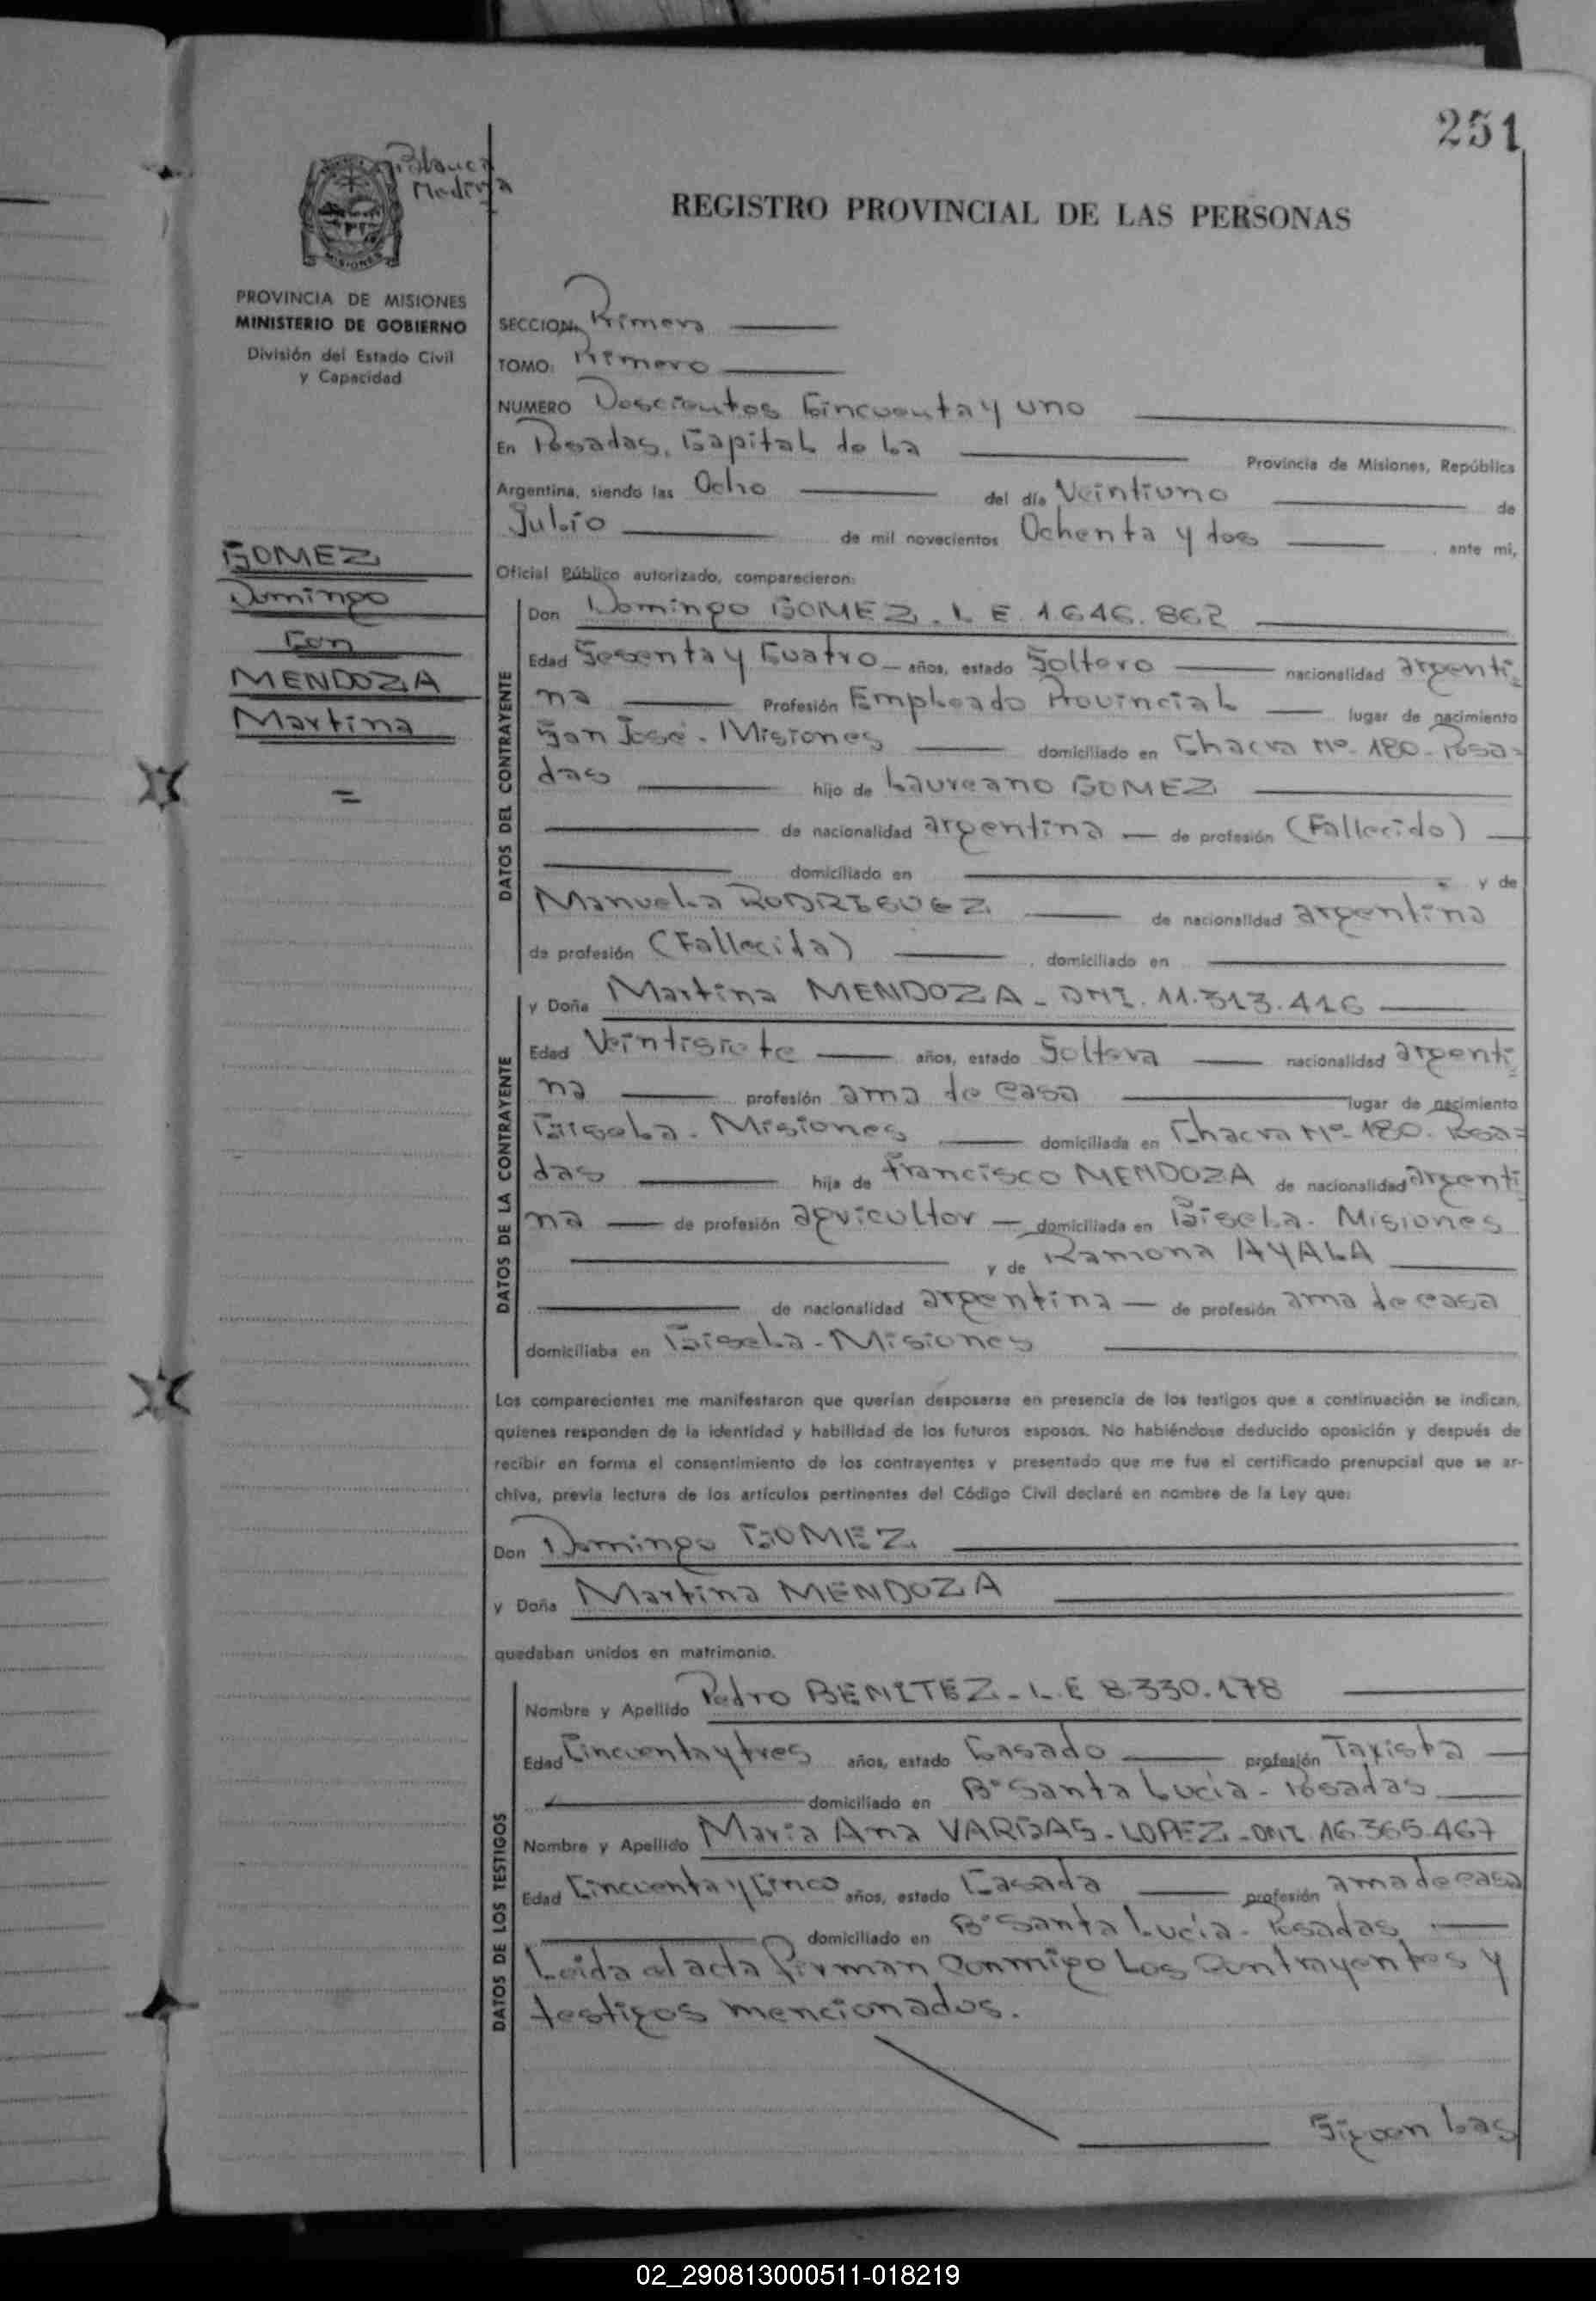 251
Blanca
Medina
REGISTRO PROVINCIAL DE LAS PERSONAS
MISIONES
PROVINCIA DE MISIONES
MINISTERIO DE GOBIERNO
División del Estado Civil
y Capacidad
SECCION: Primera
TOMO: Primero
NUMERO Doscientos Cincuenta y uno
En Posadas, Capital de La Provincia de Misiones, República
Argentina, siendo las Ocho del día Veintiuno de
Julio de mil novecientos Ochenta y dos ante mi,
Oficial Público autorizado, comparecieron:
GOMEZ
Domingo
Con
MENDOZA
Martina
=
DATOS DEL CONTRAYENTE
Don Domingo GOMEZ. L E. 1.646.862
Edad Sesenta y Cuatro años, estado Soltero nacionalidad argenti=
na Profesión Empleado Provincial lugar de nacimiento
San José. Misiones domiciliado en Chacra Nº 180. Posa=
das hijo de Laureano GOMEZ
de nacionalidad argentina de profesión (Fallecido)
domiciliado en y de
Manuela RODRIGUEZ de nacionalidad argentina
de profesión (Fallecida) domiciliado en
DATOS DE LA CONTRAYENTE
y Doña Martina MENDOZA - DNI. 11.313.416
Edad Veintisiete años, estado Soltera nacionalidad argenti=
na profesión ama de casa lugar de nacimiento
Gisela. Misiones domiciliada en Chacra Nº 180. Posa=
das hija de Francisco MENDOZA de nacionalidad argenti
na de profesión agricultor domiciliada en Gisela. Misiones
y de Ramona AYALA
de nacionalidad argentina de profesión ama de casa
domiciliaba en Gisela - Misiones
Los comparecientes me manifestaron que querían desposarse en presencia de los testigos que a continuación se indican,
quienes responden de la identidad y habilidad de los futuros esposos. No habiéndose deducido oposición y después de
recibir en forma el consentimiento de los contrayentes y presentado que me fue el certificado prenupcial que se ar-
chiva, previa lectura de los artículos pertinentes del Código Civil declaré en nombre de la Ley que:
Don Domingo GOMEZ
y Doña Martina MENDOZA
quedaban unidos en matrimonio.
DATOS DE LOS TESTIGOS
Nombre y Apellido Pedro BENITEZ - L.E 8.330.178
Edad Cincuenta y tres años, estado Casado profesión Taxista
domiciliado en Bº Santa Lucía - Posadas
Nombre y Apellido María Ana VARGAS - LOPEZ - DNI. 16.365.467
Edad Cincuenta y Cinco años, estado Casada profesión ama de casa
domiciliado en Bº Santa Lucía - Posadas
Leida el acta firman conmigo Los Contrayentes y
testigos mencionados.
Siguen Las
02_290813000511-018219